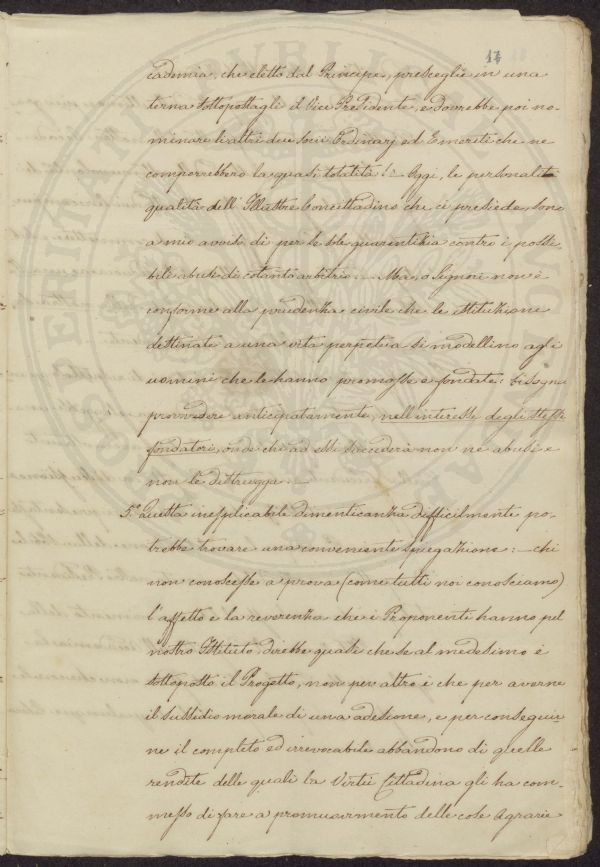 14
cademia, che eletto dal Principe, presceglie in una
terna sottopostagli il Vice Presidente, e dovrebbe poi no-
minare li altri due Socii Ordinarj ed Emeriti che ne
comporrebbero la quasi totalità! - Oggi, le personali
qualità dell'Illustre Concittadino che ci presiede, sono
a mio avviso di per se sole guarentigia contro i possi
bili abusi di cotanto arbitrio. - Ma, o Signori non è
conforme alla prudenza civile che le istituzioni
destinate a una vita perpetua si modellino agli
uomini che le hanno promosse e fondate: bisogna
provvedere anticipatamente, nell'interesse degli stessi
fondatori, onde chi ad essi succederà non ne abusi e
non le distrugga. -
5.° Questa inesplicabile dimenticanza difficilmente po-
trebbe trovare una conveniente spiegazione: - chi
non conoscesse a prova (come tutti noi conosciamo)
l'affetto e la reverenza che i Proponenti hanno pel
nostro Istituto, direbbe quasi che se al medesimo è
sottoposto il Progetto, non per altro è che per averne
il sussidio morale di una adesione, e per consegui-
ne il completo ed irrevocabile abbandono di quelle
rendite delle quali la Virtù Cittadina gli ha com-
messo di fare a promuovimento delle cose Agrarie